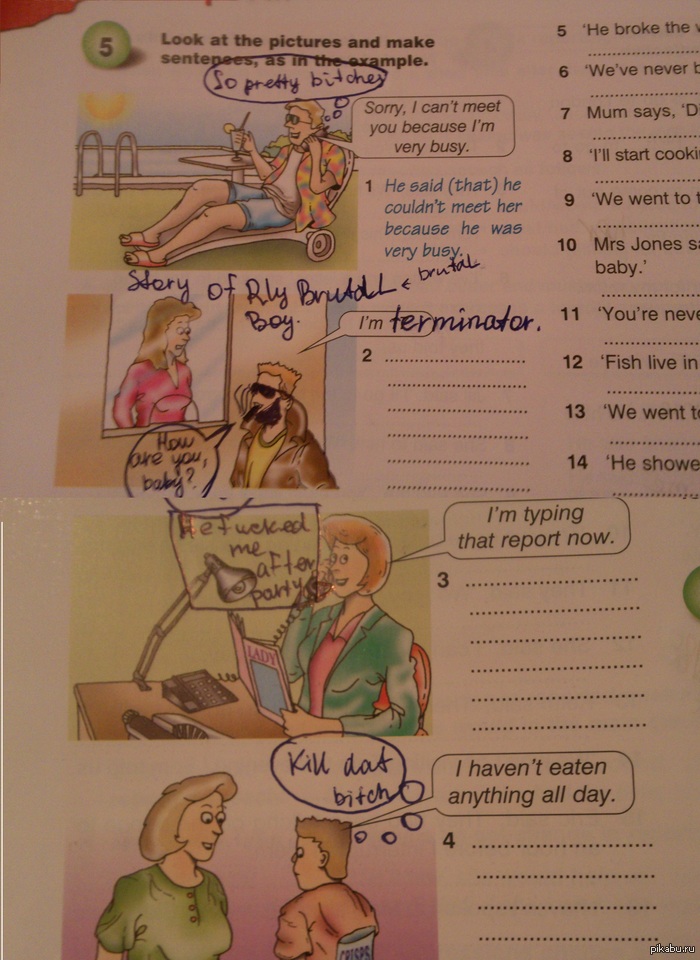 5
Look at the pictures and make
sentences, as in the example.
So pretty bitches
Sorry, I can't meet
you because I'm
very busy.
1 He said (that) he
couldn't meet her
because he was
very busy.
Story of Rly Brutal < brutal
Boy.
I'm terminator.
2
How
are you,
baby?
I'm typing
that report now.
He fucked
me
after
party
3
LADY
Kill dat
bitch
I haven't eaten
anything all day.
4
CRISPS
5 'He broke the
6 'We've never
7 Mum says,
8 'I'll start
9 'We went to
10 Mrs Jones
baby.'
11 'You're
12 'Fish live in
13 'We went
14 'He
pikabu.ru